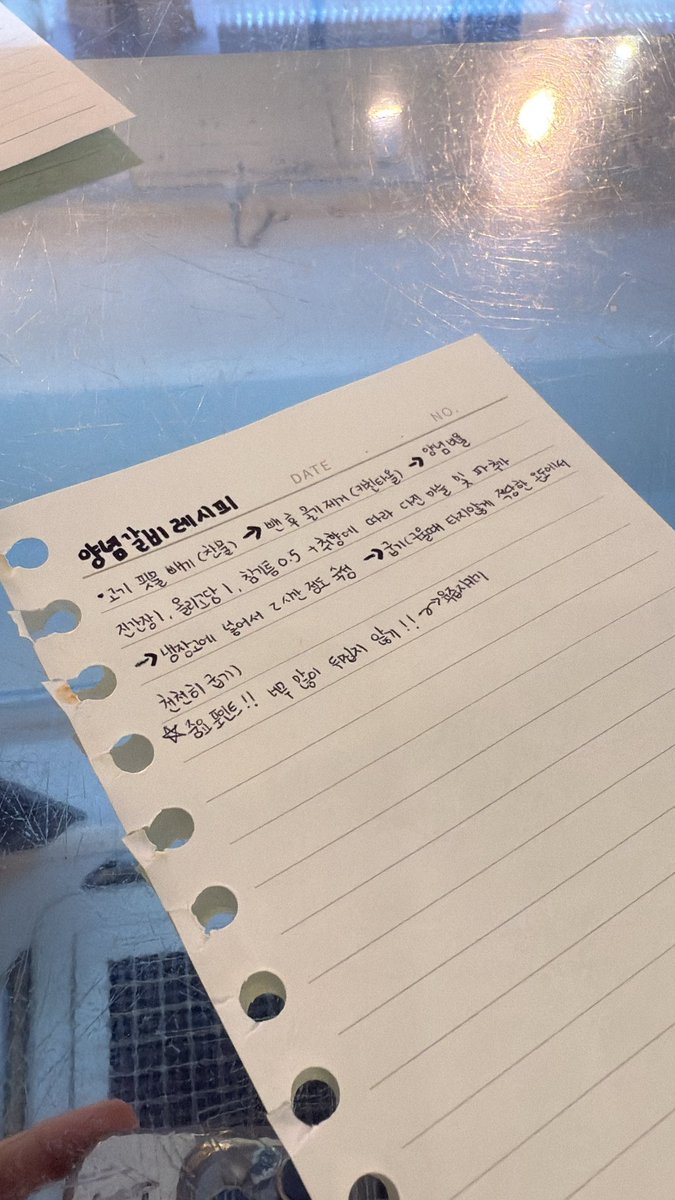 DATE . . NO.
양념갈비 레시피
• 고기 핏물 빼기 (찬물) → 뺀 후 물기 제거 (키친타올) → 양념비율
진간장 1, 올리고당 1, 참기름 0.5 + 취향에 따라 다진 마늘 및 파 추가
→ 냉장고에 넣어서 2시간 정도 숙성 → 굽기 (구울때 타지않게 적당한 온도에서
천천히 굽기)
☆ 중요 포인트!! 너무 많이 뒤집지 않게!!